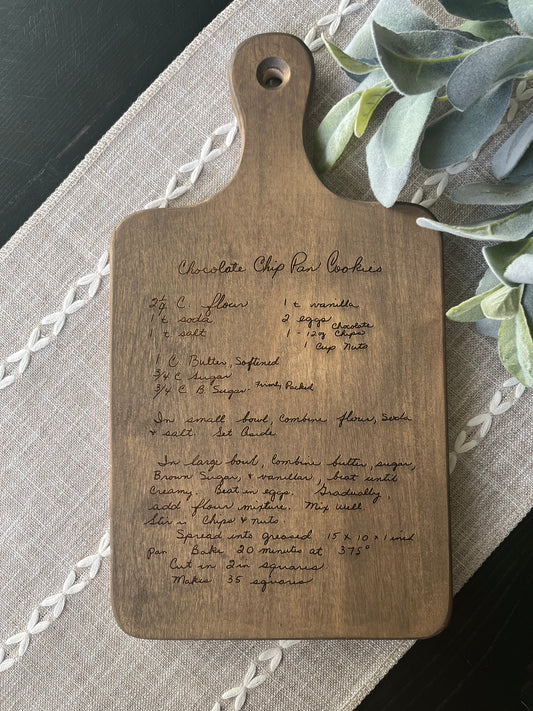 Chocolate Chip Pan Cookies
2 1/4 C. flour
1 t soda
1 t salt
1 t vanilla
2 eggs
1 - 12 oz Chocolate Chips
1 Cup Nuts
1 C Butter, Softened
3/4 C Sugar
3/4 C B. Sugar Firmly Packed
In small bowl, combine flour, Soda
+ salt. Set Aside
In large bowl, Combine butter, sugar,
Brown Sugar, + vanillar, beat until
Creamy. Beat in eggs. Gradually
add flour mixture. Mix Well
Stir in Chips + nuts.
Spread into greased 15 x 10 x 1 inch
pan Bake 20 minutes at 375°
Cut in 2 in squares
Makes 35 squares